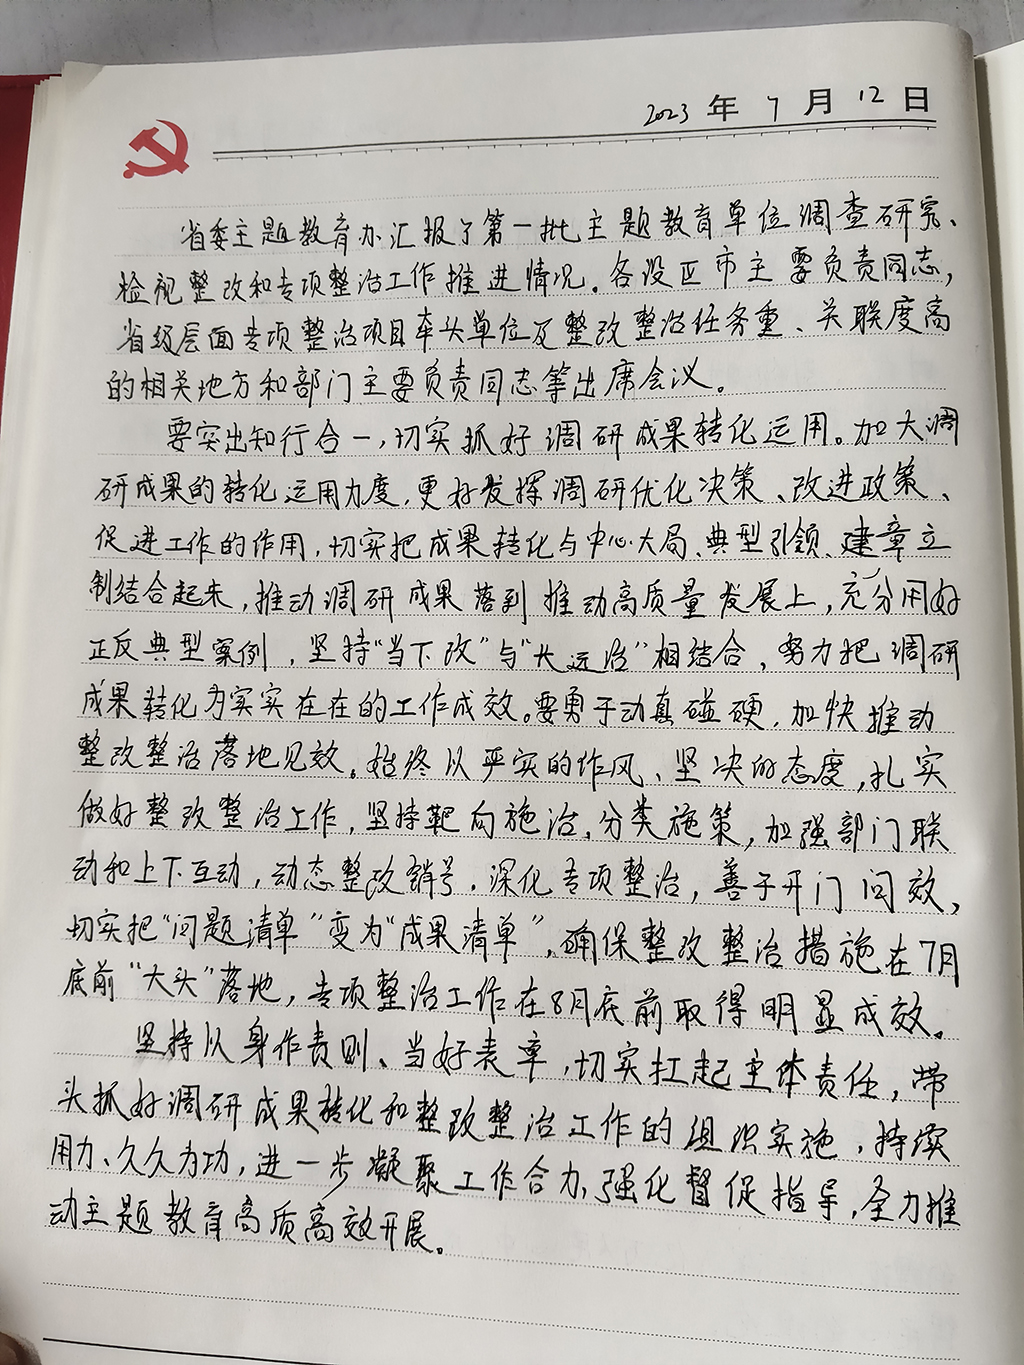 2023年7月12日
省委主题教育办汇报了第一批主题教育单位调查研究、
检视整改和专项整治工作推进情况。各设区市主要负责同志,
省级层面专项整治项目牵头单位及整改整治任务重、关联度高
的相关地方和部门主要负责同志等出席会议。
要突出知行合一,切实抓好调研成果转化运用。加大调
研成果的转化运用力度,更好发挥调研优化决策、改进政策、
促进工作的作用,切实把成果转化与中心大局、典型引领、建章立
制结合起来,推动调研成果落到推动高质量发展上,充分用好
正反典型案例,坚持“当下改”与“长远治”相结合,努力把调研
成果转化为实实在在的工作成效。要勇于动真碰硬,加快推动
整改整治落地见效。始终以严实的作风、坚决的态度,扎实
做好整改整治工作,坚持靶向施治、分类施策,加强部门联
动和上下互动,动态整改销号,深化专项整治,善于开门问效,
切实把“问题清单”变为“成果清单”,确保整改整治措施在7月
底前“大头”落地,专项整治工作在8月底前取得明显成效。
坚持以身作责则、当好表率,切实扛起主体责任,带
头抓好调研成果转化和整改整治工作的组织实施,持续
用力、久久为功,进一步凝聚工作合力,强化督促指导,全力推
动主题教育高质高效开展。